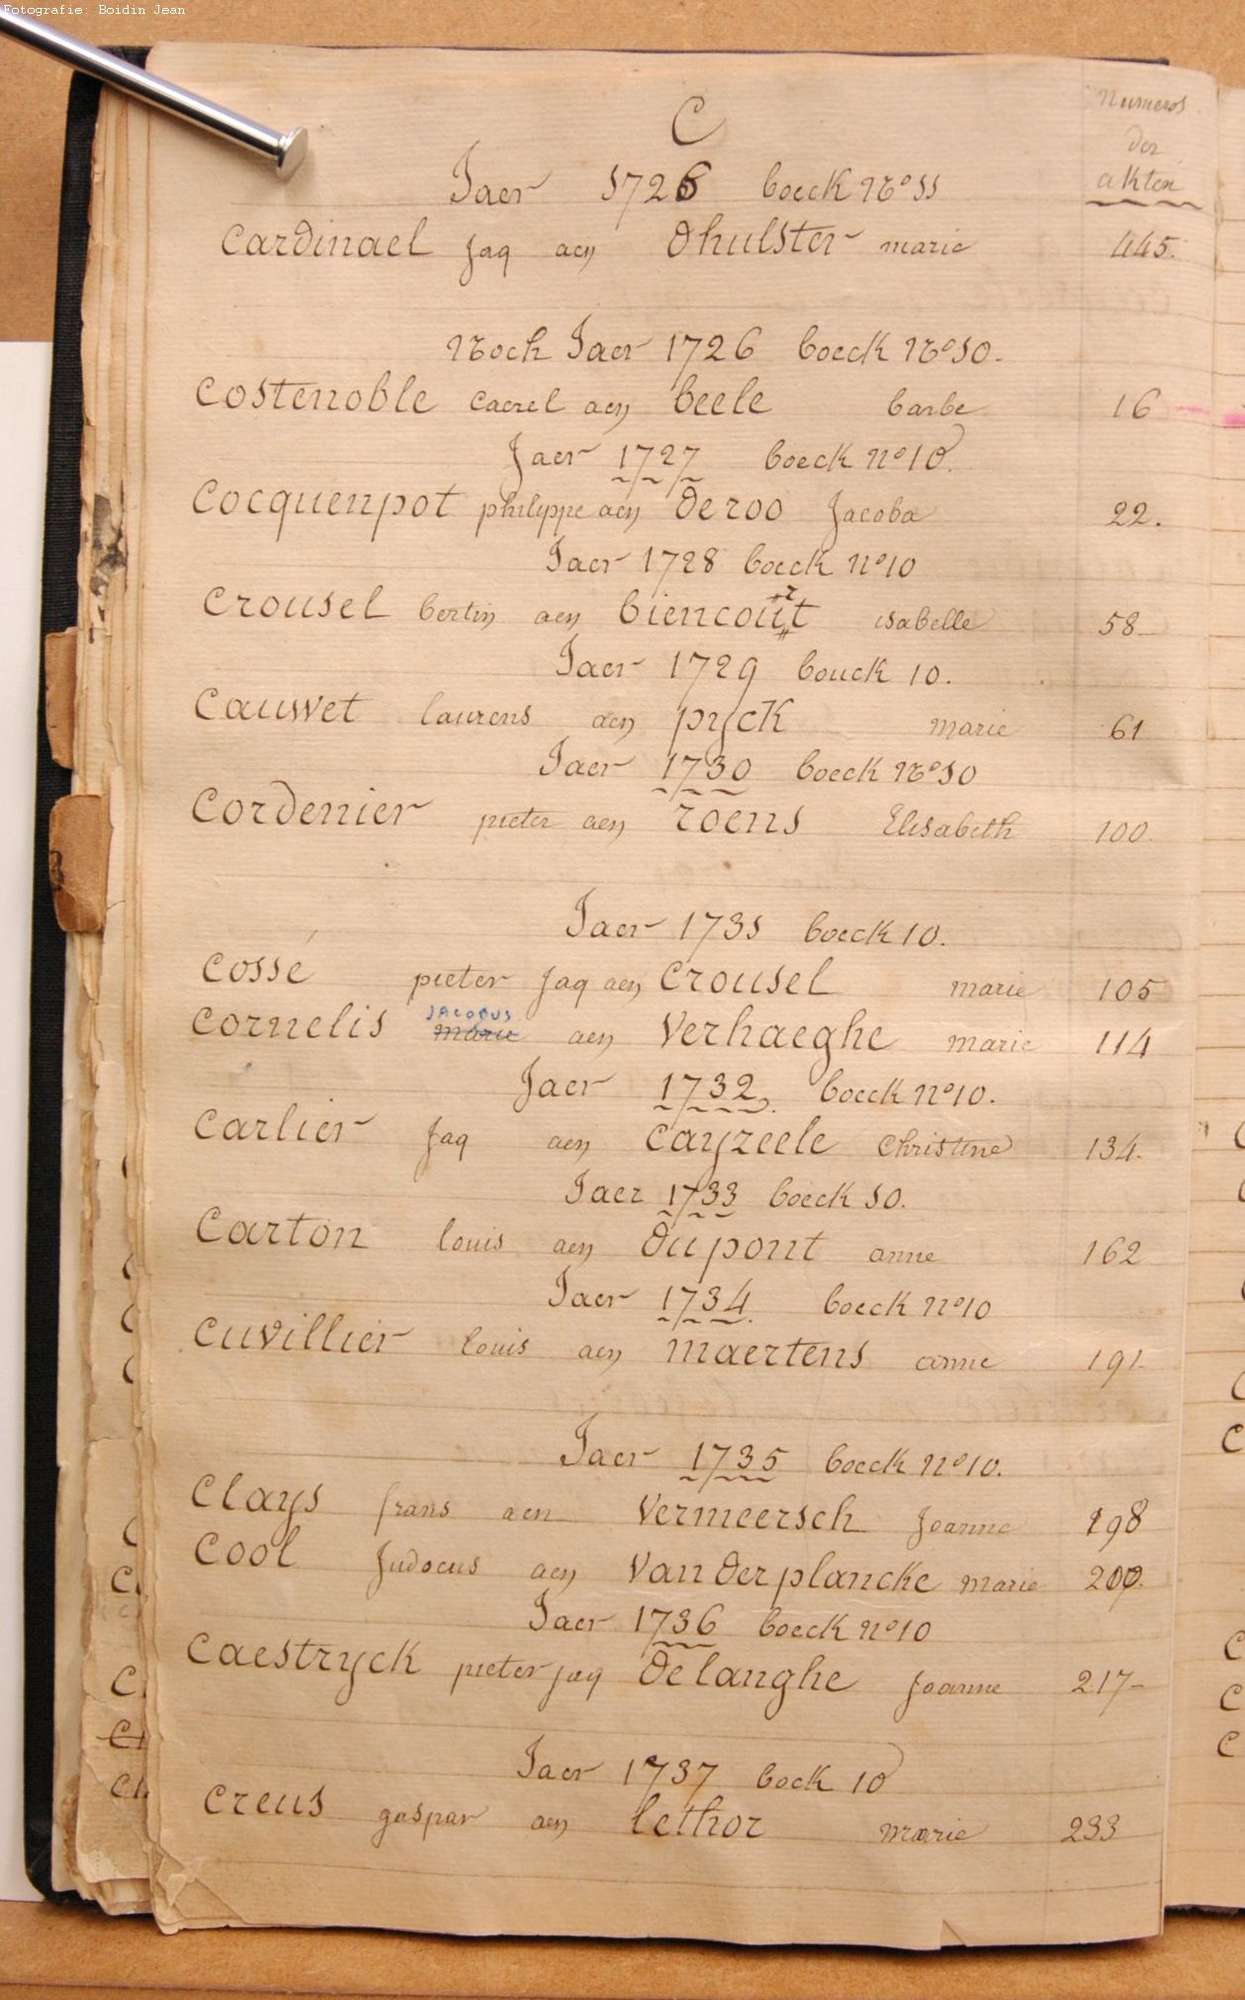 Fotografie: Boidin Jean
C
Numeros
der
akten
Jaer 1726 boeck No 11
Cardinael Jaq aen Dhulster marie 445.
Noch Jaer 1726 boeck No 10.
Costenoble Caerel aen beele barbe 16
Jaer 1727 boeck no 10.
Cocquenpot philippe aen Deroo Jacoba 22.
Jaer 1728 boeck no 10
Crousel bertin aen biencourt isabelle 58
Jaer 1729 bouck 10.
Cauwet laurens aen pyck marie 61
Jaer 1730 boeck No 10
Cordenier pieter aen roens Elisabeth 100.
Jaer 1731 boeck 10.
Cossé pieter Jaq aen Crousel marie 105
JACOBUS
Cornelis marie aen Verhaeghe marie 114
Jaer 1732. boeck no 10.
Carlier Jaq aen Cayzeele Christine 134.
Jaer 1733 boeck 10.
Carton louis aen Dupont anne 162
Jaer 1734. boeck no 10
Cuvillier louis aen maertens anne 191
Jaer 1735 boeck no 10.
Clays frans aen Vermeersch Joanne 198
Cool Judocus aen Vanderplancke marie 200.
Jaer 1736 boeck no 10
Caestryck pieter jaq Delanghe Joanne 217
Jaer 1737 boek 10
Creus gaspar aen lethor marie 233